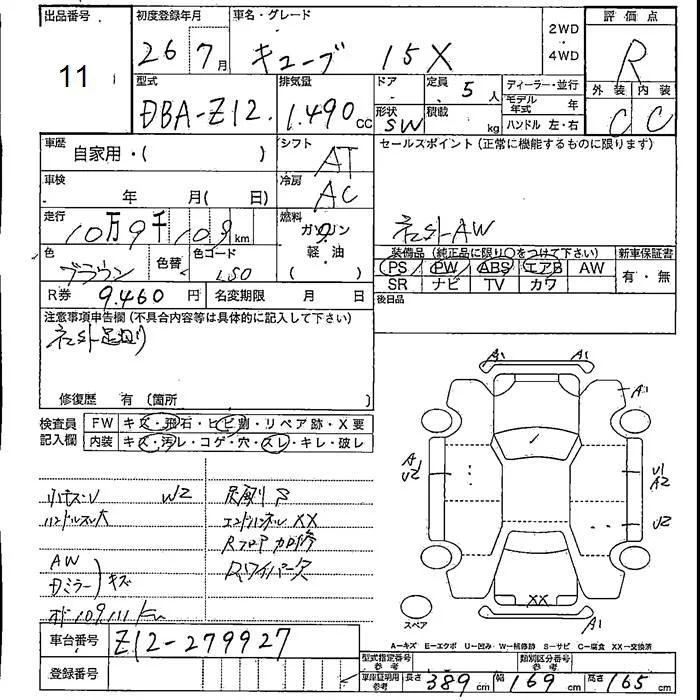 出品番号 初度登録年月 車名・グレード 2WD・4WD 評価点
11 26年7月 キューブ 15X R
型式 排気量 ドア 定員 5人 ディーラー・並行 外装 内装
DBA-Z12. 1.490cc 形状 SW 積載 kg モデル年式 年 C C
ハンドル 左・右
車歴 自家用・( ) シフト AT セールスポイント (正常に機能するものに限ります)
車検 年 月( 日) 冷房 AC
走行 10万9千 km 燃料 ガソリン 軽・油 ( ) 社外AW
色 ブラウン 色替 色コード 装備品 (純正品に限り○をつけて下さい) 新車保証書
PS PW ABS エアB AW 有・無
SR ナビ TV カワ
R券 9.460円 名変期限 月 日 後日品
注意事項申告欄 (不具合内容等は具体的に記入して下さい)
修復歴 有 (箇所 )
検査員記入欄 FW キズ・飛石・ヒビ割・リペア跡・X要
内装 キズ・汚レ・コゲ・穴・スレ・キレ・破レ
小キズ・U W2
ハンドルスレ大
AW
キズ
109,111 Km
エンドパネル XX
Rワイパー欠
A1 A1
A1
A U2
U1 A2
U2
XX
A1
スペア
A=キズ E=エクボ U=凹み W=補修跡 S=サビ C=腐食 XX=交換済
車台番号 Z12-279927
登録番号
型式指定番号 参考 類別区分番号 参考
車庫証明用 参考 長さ 389cm 幅 169cm 高さ 165cm